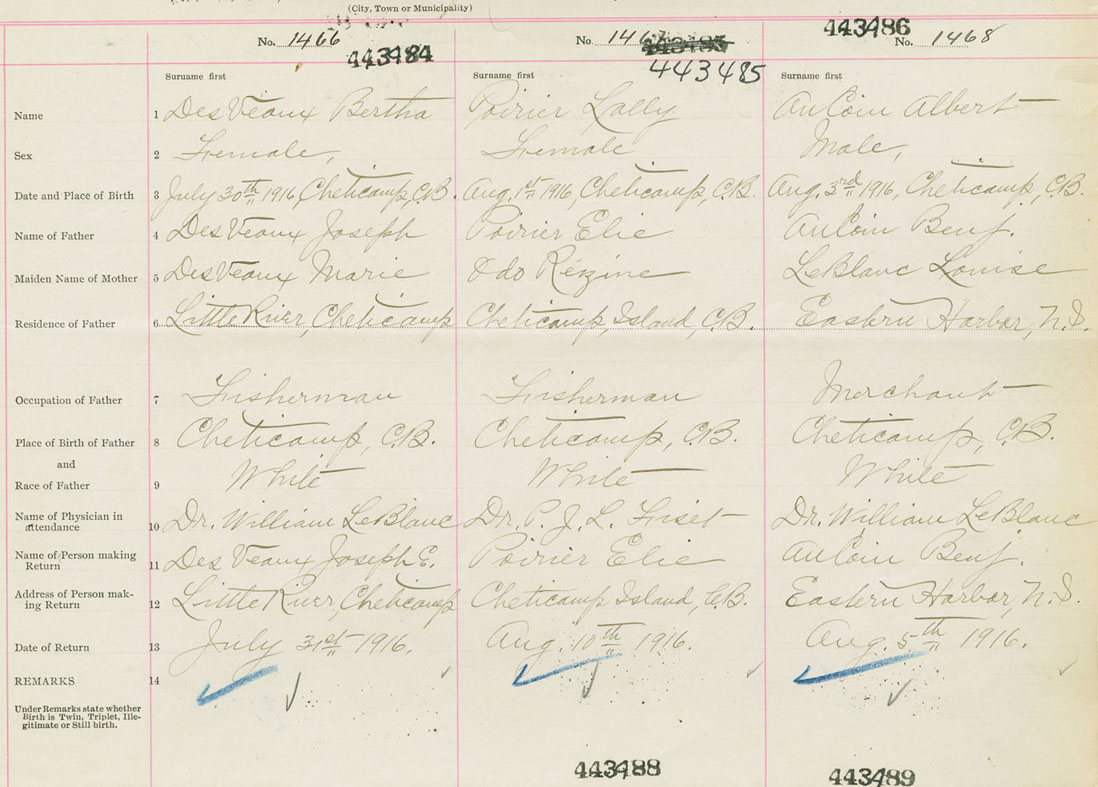 (City, Town or Municipality)
No. 1466
443484
No. 1467
443485
443485
443486
No. 1468
Surname first Surname first Surname first
Name 1 DesVeaux Bertha Poirier Lally AuCoin Albert
Sex 2 Female, Female Male,
Date and Place of Birth 3 July 30th 1916, Cheticamp, C.B. Aug. 1st 1916, Cheticamp, C.B. Aug. 3rd 1916, Cheticamp, C.B.
Name of Father 4 DesVeaux Joseph Poirier Elie AuCoin Benj.
Maiden Name of Mother 5 DesVeaux Marie & do Rézine LeBlanc Louise
Residence of Father 6 Little River, Cheticamp Cheticamp, Island, C.B. Eastern Harbor, N.S.
Occupation of Father 7 Fisherman Fisherman Merchant
Place of Birth of Father 8 Cheticamp, C.B. Cheticamp, C.B. Cheticamp, C.B.
and
Race of Father 9 White White White
Name of Physician in
attendance 10 Dr. William LeBlanc Dr. P. J. L. Fiset Dr. William LeBlanc
Name of Person making
Return 11 DesVeaux Joseph E. Poirier Elie AuCoin Benj.
Address of Person mak-
ing Return 12 Little River, Cheticamp Cheticamp Island, C.B. Eastern Harbor, N.S.
Date of Return 13 July 31st 1916. Aug. 10th 1916. Aug. 5th 1916.
REMARKS 14
Under Remarks state whether
Birth is Twin, Triplet, Ille-
gitimate or Still birth.
443488 443489